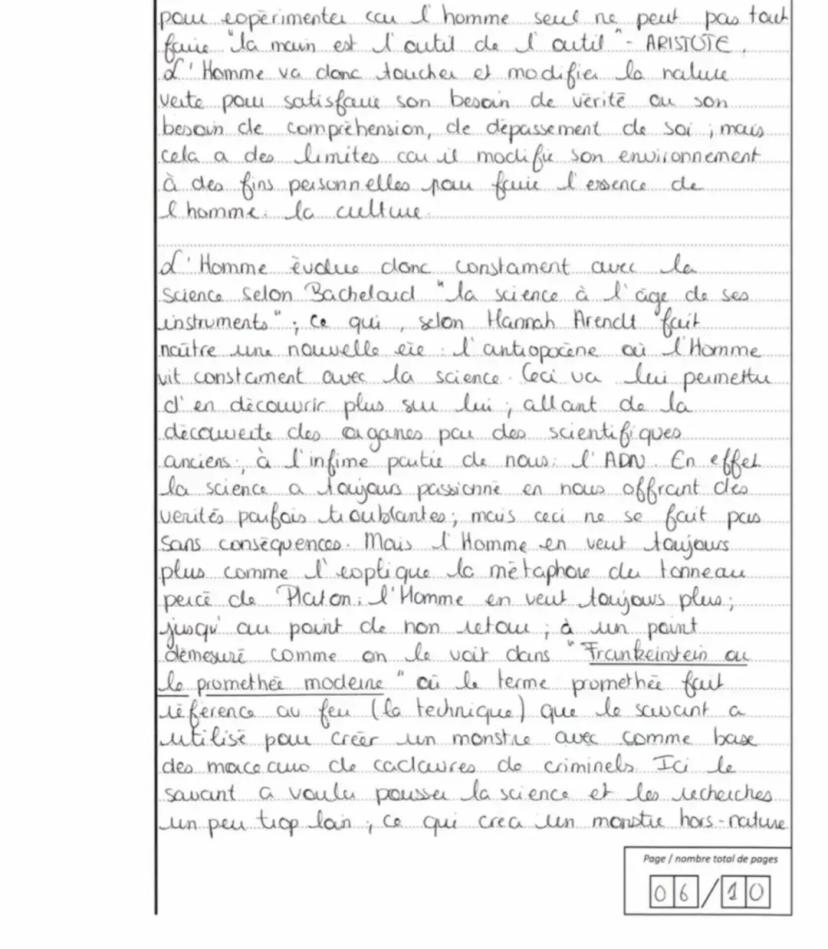 pour expérimenter car l'homme seul ne peut pas tout
faire "la main est l'outil de l'outil" - ARISTOTE.
L'Homme va donc toucher et modifier la nature
verte pour satisfaire son besoin de vérité ou son
besoin de compréhension, de dépassement de soi ; mais
cela a des limites car il modifie son environnement
à des fins personnelles pour fuire l'essence de
l'homme : la culture.
L'Homme évolue donc constament avec la
science selon Bachelard "la science à l'âge de ses
instruments" ; ce qui, selon Hannah Arendt fait
naître une nouvelle ère : l'antropocène où l'Homme
vit constament avec la science. Ceci va lui permettre
d'en découvrir plus sur lui ; allant de la
découverte des organes par des scientifiques
anciens ; à l'infime partie de nous : l'ADN. En effet
la science a toujours passionné en nous offrant des
verités parfois troublantes ; mais ceci ne se fait pas
sans conséquences. Mais l'Homme en veut toujours
plus comme l'explique la métaphore du tonneau
percé de Platon : l'Homme en veut toujours plus ;
jusqu'au point de non retour ; à un point
démesuré comme on le voit dans "Frankeinstein ou
le promethée moderne" où le terme promethée fait
référence au feu (la technique) que le savant a
utilisé pour créer un monstre avec comme base
des morceaux de cadavres de criminels. Ici le
savant a voulu pousser la science et les recherches
un peu trop loin ; ce qui crea un monstre hors-nature
Page / nombre total de pages
06/10